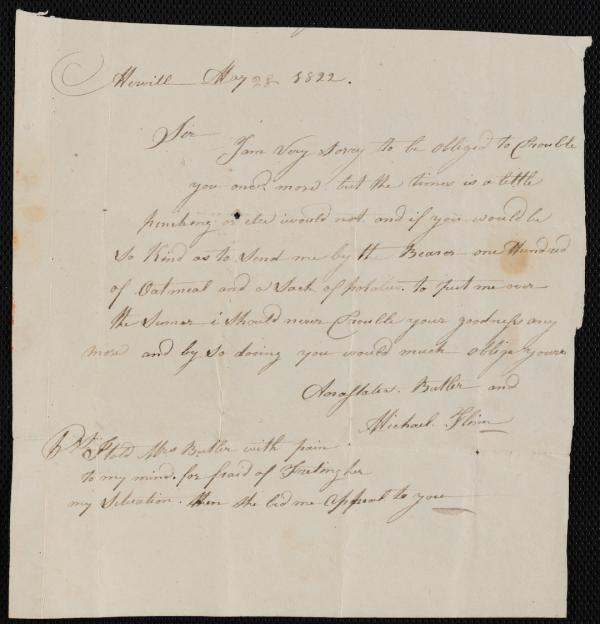 May 28 1822.
Sir
I am Very Sorry to be obliged to Trouble
you once more but the times is a little
pinching or else i would not and if you would be
So Kind as to Send me by the Bearer one Hundred
of Oatmeal and a Sack of potatoes. to put me over
the Sumer i Should never Trouble your goodness any
more and by so dooing you would much oblige yours
Anastatia. Butler and
Michael. Flinn
I told Mrs Butler with pain
to my mind. for fraid of
my Situation. then she bid me appeal to you